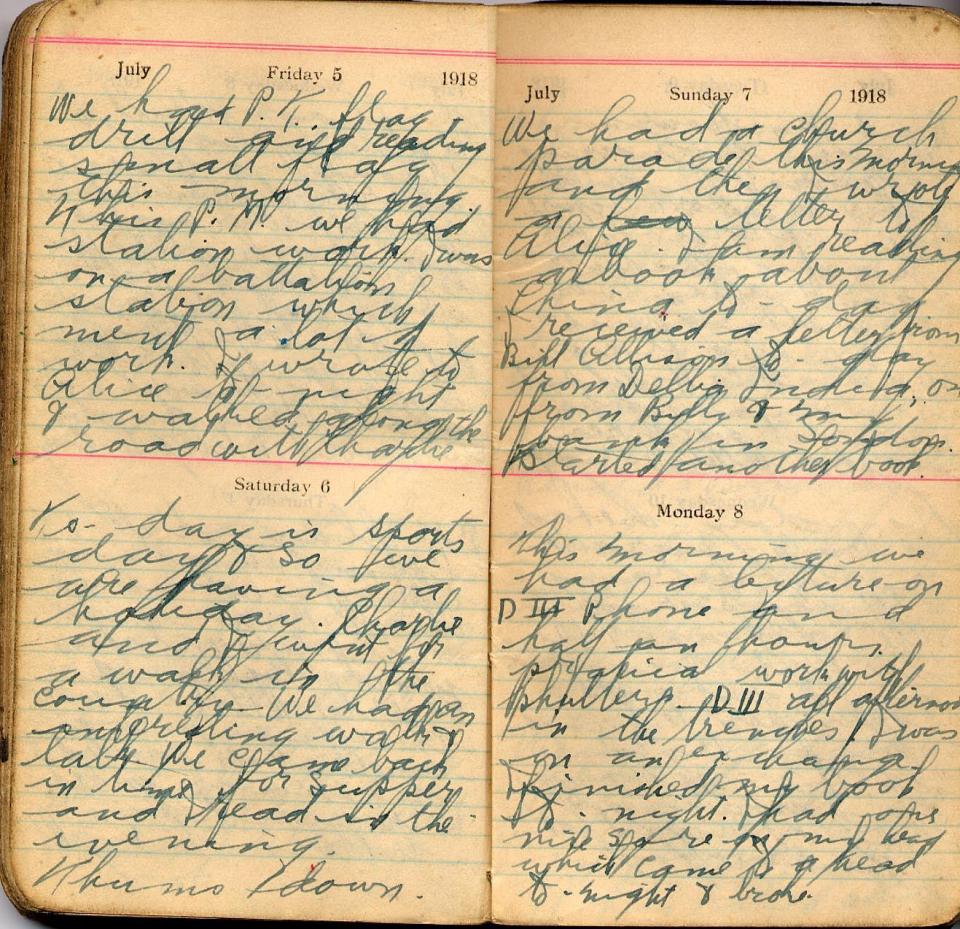 July Friday 5 1918
We had P.T. flag
drill and reading
small flag
this morning.
This P.M. we had
station work. I was
on a battalion
station which
ment a lot of
work. I wrote to
Alice to-night
& walked along the
road with Charlie
Saturday 6
To-day is sports
day & so we
are having a
holiday. Charlie
and I went for
a walk in the
country. We had an
interesting walk &
talk. We came back
in time for supper
and I read in the
evening.
Thums down.
July Sunday 7 1918
We had a church
parade this morning
and then I wrote
a letter to
Alice. I am reading
a book about
China to-day
I received a letter from
Bill Allison to-day
from Delhi India, on
from Billy & my
bank in London
Started another book.
Monday 8
This morning we
had a lecture on
D III Phone and
half an hours
practice work with
phullers. D III all afternoon
in the trenches I was
on an exchange.
I finished my book
to-night. I had a
nife sore on my
which came to a head
to-night & broke.